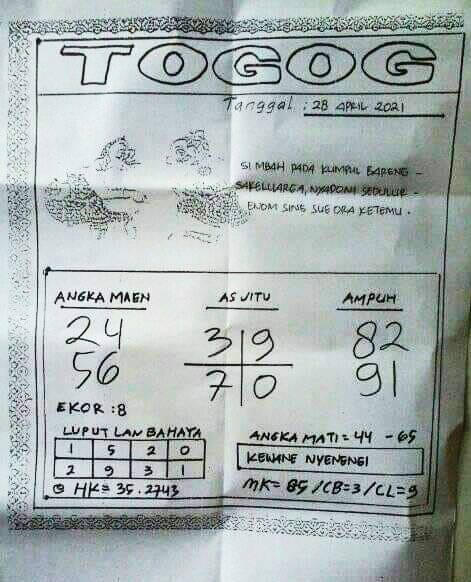 TOGOG
Tanggal : 28 APRIL 2021
SI MBAH PADA KUMPUL BARENG -
SAKELUARGA, NYADONI SEDULUR -
ENOM SING SUE ORA KETEMU.
ANGKA MAEN AS JITU AMPUH
24 3 9 82
56 7 0 91
EKOR : 8
LUPUT LAN BAHAYA
1 5 2 0
2 9 3 1
HK = 35.2743
ANGKA MATI = 44 - 65
KEWANE NYENENGI
MK= 85 / CB=3 / CL=9